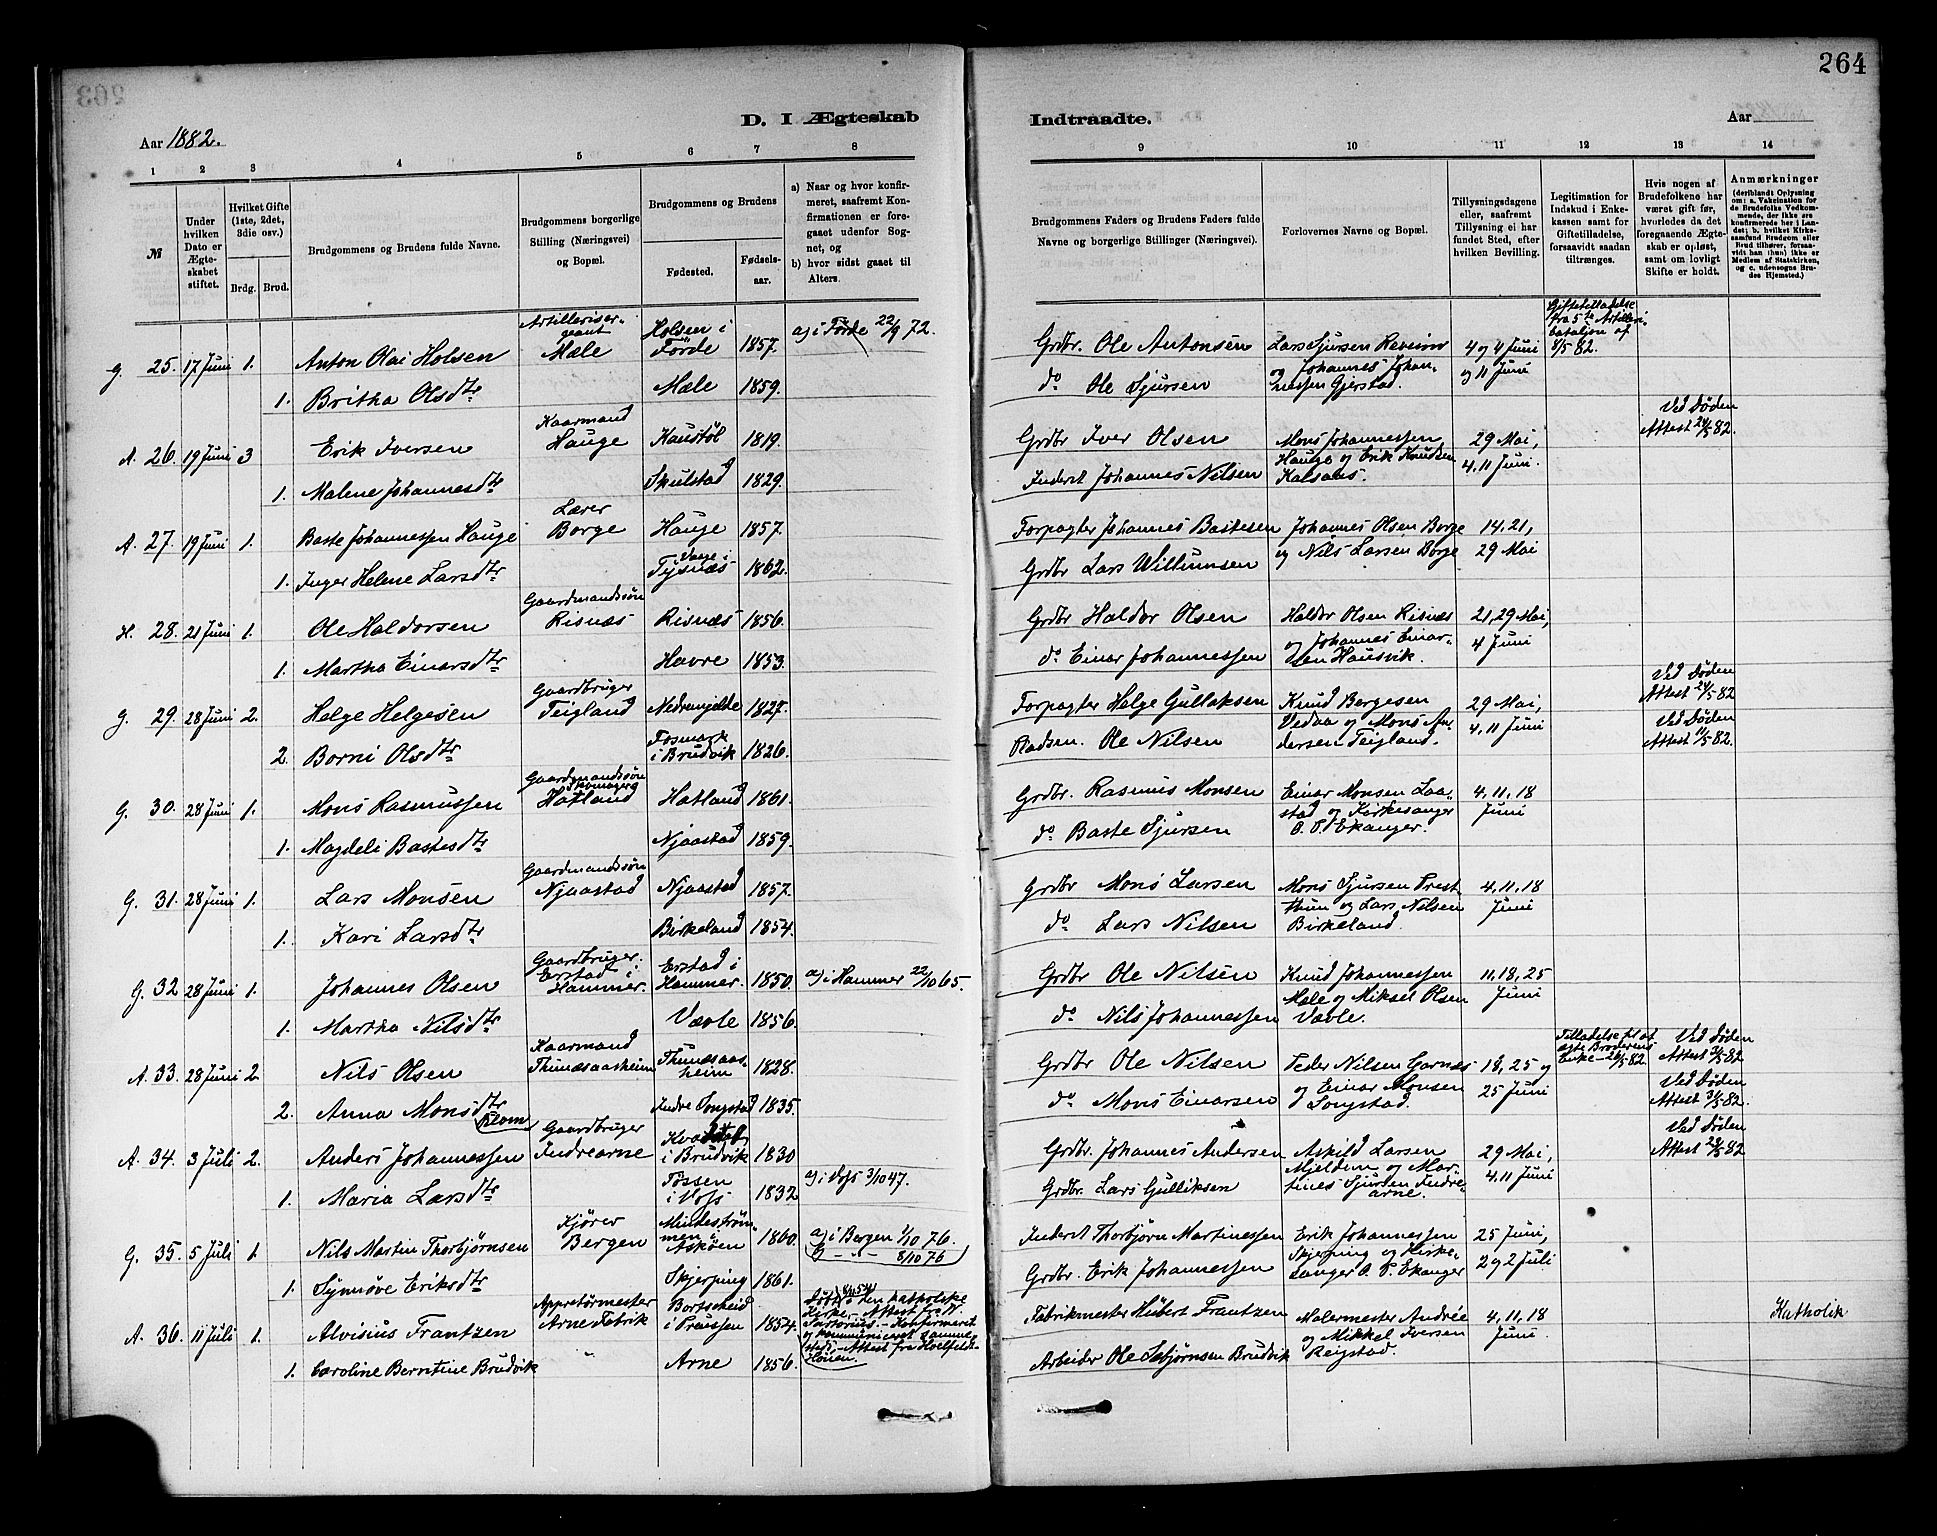 264
Aar 1882.
D. I Ægteskab
Indtraadte.
Aar
1 2 3 4 5 6 7 8
9 10 11 12 13 14
№
Under hvilken Dato er Ægteskabet stiftet.
Hvilket Gifte (1ste, 2det, 3die osv.)
Brdg. Brud.
Brudgommens og Brudens fulde Navne.
Brudgommens borgerlige Stilling (Næringsvei) og Bopæl.
Brudgommens og Brudens
Fødested.
Fødselsaar.
a) Naar og hvor konfirmeret, saafremt Konfirmationen er foregaaet udenfor Sognet, og
b) hvor sidst gaaet til Alters.
Brudgommens Faders og Brudens Faders fulde Navne og borgerlige Stillinger (Næringsvei).
Forlovernes Navne og Bopæl.
Tillysningsdagene eller, saafremt Tillysning ei har fundet Sted, efter hvilken Bevilling.
Legitimation for Indskud i Enkekassen samt for Giftetilladelse, forsaavidt saadan tiltrænges.
Hvis nogen af Brudefolkene har været gift før, hvorledes da det foregaaende Ægteskab er opløst, samt om lovligt Skifte er holdt.
Anmærkninger (deriblandt Oplysning om: a. Vakcination for de Brudefolks Vedkommende, der ikke ere konfirmerede her i Landet; b. hvilket Kirkesamfund Brudgom eller Brud tilhører, forsaavidt han (hun) ikke er Medlem af Statskirken, og c. udensogns Brudes Hjemsted.)
g. 25. 17 Juni 1. Anton Olai Holsen Artillerisergeant Mæle Holsen i Förde 1857. a) i Förde 22/9 72. Grdbr. Ole Antonsen Lars Sjursen Revision og Johannes Johannessen Gjerstad. 4 og 4 Juni og 11 Juni Giftetilladelse fra 5te Artilleribataljon af 8/5 82.
1. Britha Olsdtr Mæle 1859. do Ole Sjursen
A. 26. 19 Juni 3 Erik Iversen Kaarmand Hauge Kaustöl 1819. Grdbr Iver Olsen Mons Johannessen Hauge og Erik Knudsen Kalsaas. 29 Mai, 4, 11 Juni. Ved Døden Attest 24/5 82.
1. Malene Johannesdtr Skulstad 1829. Inderst Johannes Nilsen
A. 27. 19 Juni 1. Baste Johannessen Hauge Lærer Borge Hauge 1857. Forpagter Johannes Bastesen Johannes Olsen Borge og Nils Larsen Borge 14, 21, 29 Mai
1. Inger Helene Larsdtr Vaage i Tysnæs 1862. Grdbr Lars Willumsen
H. 28. 21 Juni 1. Ole Haldorsen Gaardmandssön Risnæs Risnæs 1856. Grdbr Haldor Olsen Haldor Olsen Risnæs og Johannes Einarsen Hausvik. 21, 29 Mai, 4 Juni
1. Martha Einarsdtr Havre 1853. do Einar Johannessen
g. 29. 28 Juni 2. Helge Helgesen Gaardbruger Teigland Nedremjelde 1827. Forpagter Helge Gullaksen Knud Bergesen Vedaa og Mons Andersen Teigland. 29 Mai, 4, 11 Juni Ved Døden Attest 24/5 82
2. Borni Olsdtr Fosmark i Brudvik 1826. Pladsm. Ole Nilsen Ved Døden Attest 11/5 82.
G. 30. 28 Juni 1. Mons Rasmussen Gaardmandssön Skomager Hatland Hatland 1861. Grdbr. Rasmus Monsen Einar Monsen Laastad og Kirkesanger O. P. Ekanger. 4, 11, 18 Juni
1. Magdeli Bastesdtr Njaastad 1859. do Baste Sjursen
G. 31. 28 Juni 1. Lars Monsen Gaardmandssön Njaastad Njaastad 1857. Grdbr Mons Larsen Mons Sjursen Prestthun og Lars Nilsen Birkeland. 4, 11, 18 Juni
1. Kari Larsdtr Birkeland 1854. do Lars Nilsen
G. 32 28 Juni 1. Johannes Olsen Gaardbruger Erstad i Hammer. Erstad i Hammer. 1850. a) i Hammer 22/10 65. Grdbr Ole Nilsen Knud Johannessen Mæle og Mikael Olsen Vavle. 11, 18, 25 Juni
1. Martha Nilsdtr Vavle 1856. do Nils Johannessen
A. 33. 28 Juni 2. Nils Olsen Kaarmand Thunæsaasheim Thunæsaasheim 1828. Grdbr Ole Nilsen Peder Nilsen Garnes og Einar Monsen Songstad. 18, 25 og 25 Juni Tilladelse til at ægte Broderens Enke - 26/5 82. Ved Døden Attest 31/5 82
2. Anna Monsdtr Indre Songstad 1835. do Mons Einarsen Ved Døden Attest 31/5 82.
A. 34. 3 Juli 2. Anders Johannessen Gaardbruger Indrearne i Brudvik 1830 Grdbr. Johannes Andersen Askild Larsen Mjeldem og Martines Sjursen Indrearne. 29 Mai, 4. 11 Juni Ved Døden Attest 28/5 82
1. Maria Larsdtr Tøssen i Vofs 1832 a) i Vofs 3/10 47. Grdbr. Lars Gulliksen
G. 35. 5 Juli 1 Nils Martin Thorbjørnsen Kjører Bergen Mindeströmmen i Askøen 1860. a) i Bergen 1/10 76. b - " - 8/10 76 Inderst Thorbjörn Martinessen Erik Johannessen Skjerping og Kirkesanger O. P. Ekanger 25 Juni, og 2 Juli
1. Synnöve Eriksdtr Skjerping 1861. Grdbr. Erik Johannessen
A. 36. 11 Juli 1. Alvisius Frantzen Appretörmester Arne Fabrik Bortscheid i Preussen 1854. Döbt i den katholske Kirke - Attest fra W. Sartorius - Konfirmeret og kommuniceret sammesteds - Attest fra Holfeldt-Houen. Fabrikmester Hubert Frantzen Malermester Andrée og Mikkel Iversen Reigstad. 4, 11, 18 Juni Katholik
1. Caroline Berntine Brudvik " Arne 1856. Arbeider Ole Asbjörnsen Brudvik